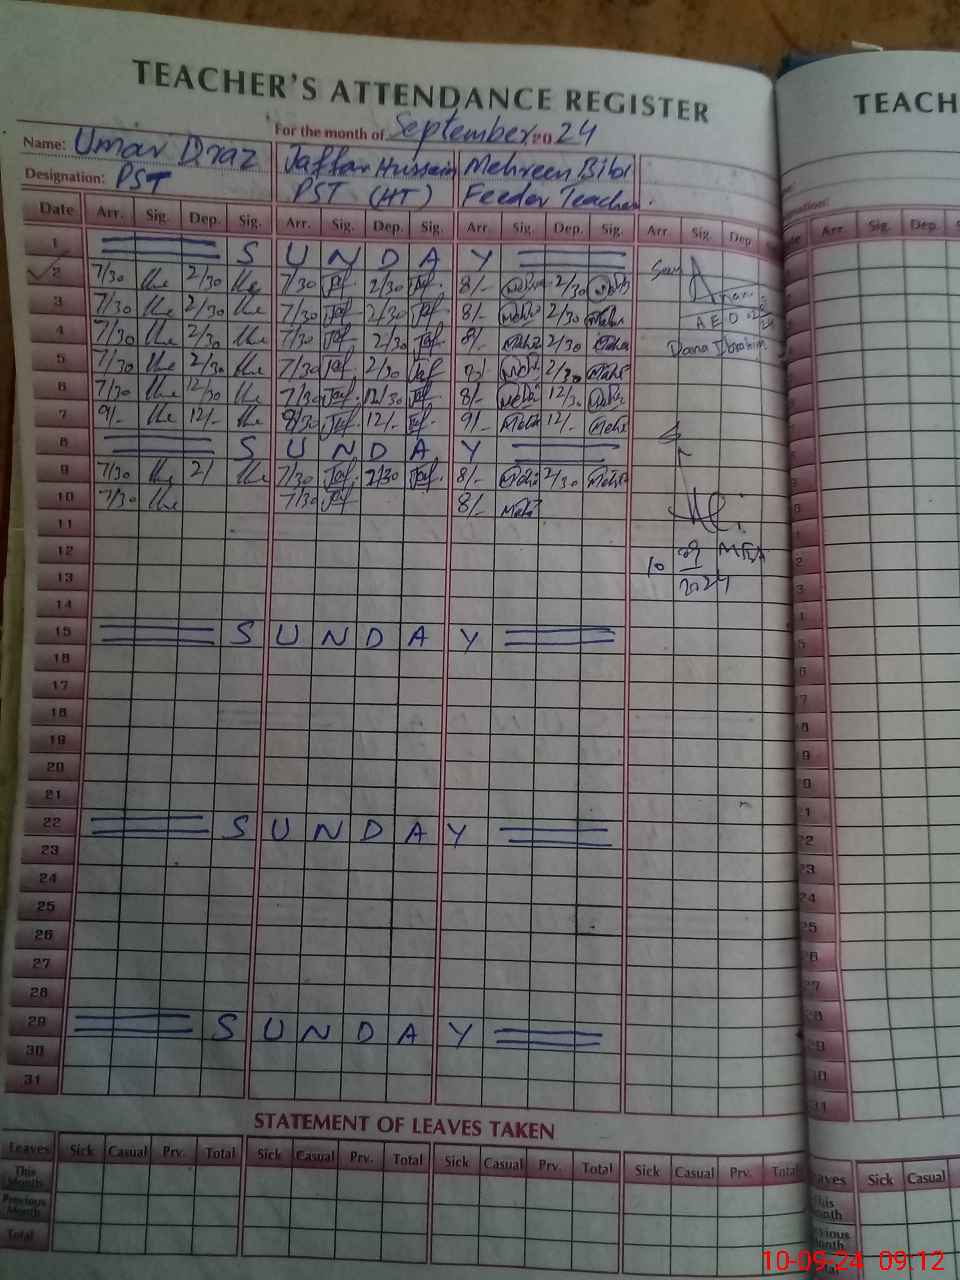 TEACHER'S ATTENDANCE REGISTER
TEACH
For the month of September 2024
Name: Umar Draz Jaffar Hussain Mehreen Bibi
Designation: PST PST (HT) Feeder Teacher.
Date Arr. Sig. Dep. Sig. Arr. Sig. Dep. Sig. Arr. Sig. Dep. Sig. Arr. Sig. Dep Arr. Sig. Dep.
1 S U N D A Y
2 7/30 2/30 7/30 Jaf 2/30 Jaf 8/- 2/30
3 7/30 2/30 7/30 Jaf 2/30 Jaf 8/- 2/30
4 7/30 2/30 7/30 Jaf 2/30 Jaf 8/- 2/30
A E O
5 7/30 2/30 7/30 Jaf 2/30 Jaf 8/- 2/30
6 7/30 12/30 7/30 Jaf 12/30 Jaf 8/- 12/30
7 9/- 12/- 8/30 Jaf 12/- Jaf 9/- 12/-
8 S U N D A Y
9 7/30 2/ 7/30 Jaf 2/30 Jaf 8/- 2/30
10 7/30 7/30 Jaf 8/-
11
12
10 09 MEA
13
2024
14
15 S U N D A Y
16
17
18
19
20
21
22 S U N D A Y
23
24
25
26
27
28
29 S U N D A Y
30
31
STATEMENT OF LEAVES TAKEN
Leaves Sick Casual Prv. Total Sick Casual Prv. Total Sick Casual Prv. Total Sick Casual Prv. Total Sick Casual
This Month
Previous Month
Total
10-09-24 09:12